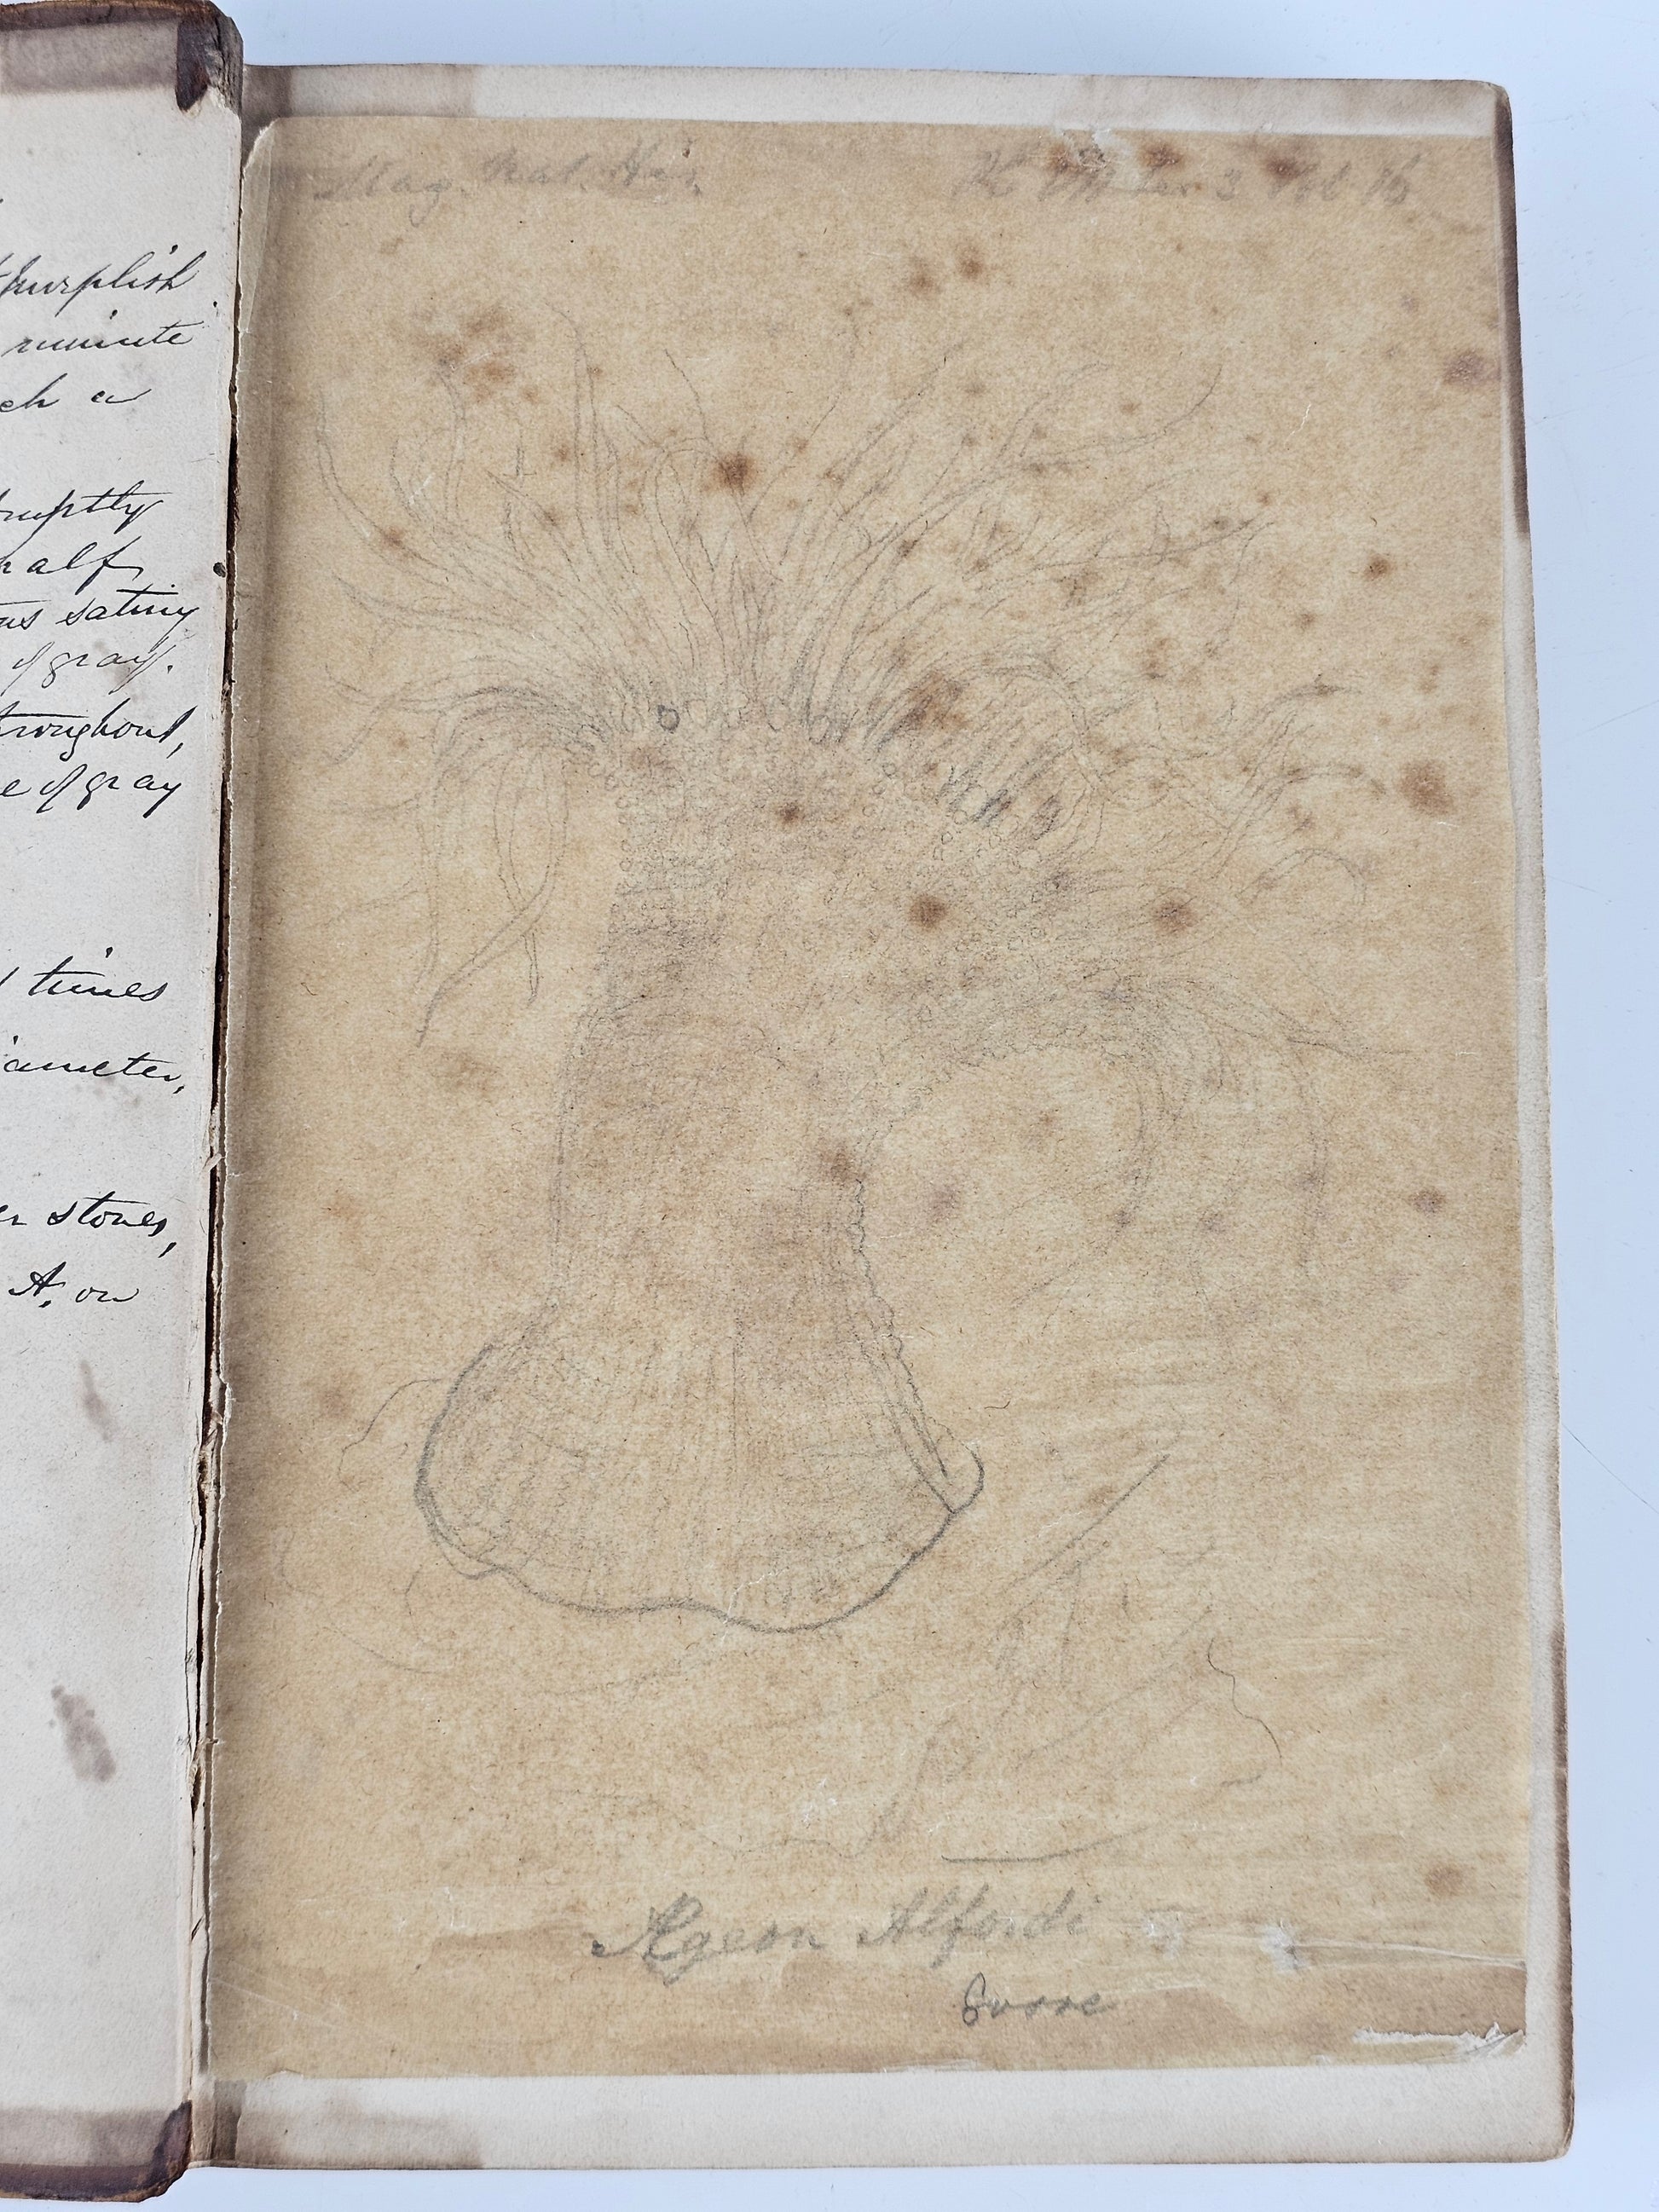 purplish
minute
ch a
ruptly
half
us satiny
of gray.
throughout,
e of gray
times
iameter,
er stones,
A. on
Mag. Nat. His. Ser. 3 Vol 16
Ægeon Alfordi
Gosse